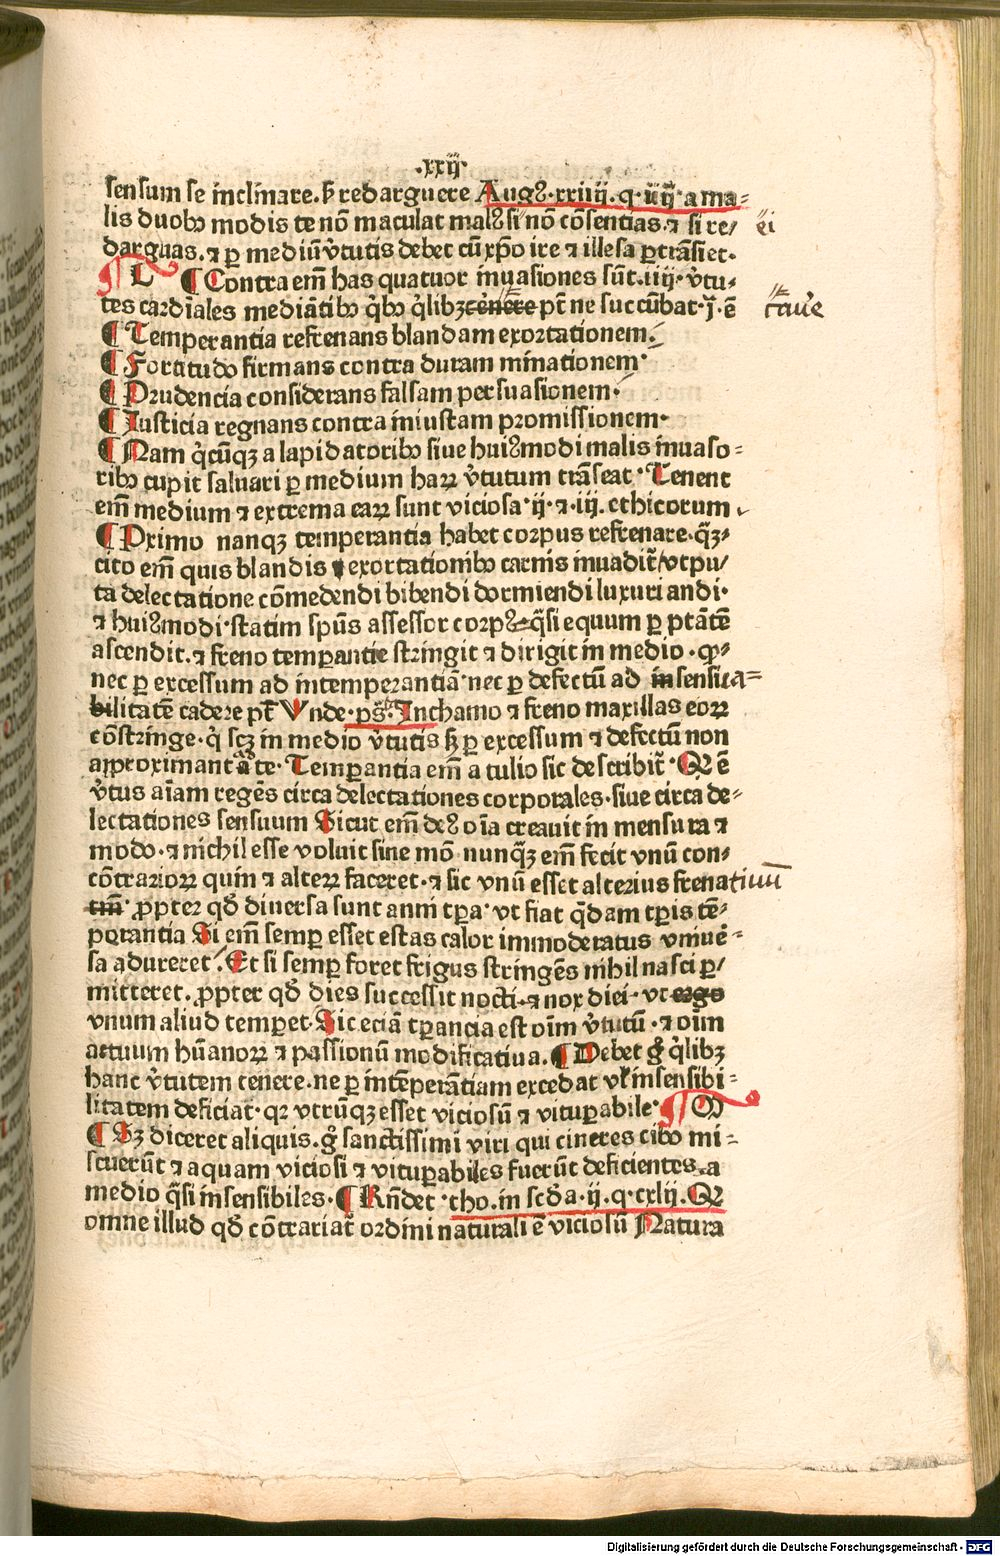 ·xxij·
sensum se inclinare. ẜ redarguere Augꝰ. xxiiij. q. iiij. a ma⸗
lis duobꝰ modis te nō maculat malꝰ si nō cōsentias. ⁊ si re/ ei
darguas. ⁊ ꝑ mediū ṽtutis debet cū xp̄o ire ⁊ illesa ꝑtrāsiet.
L ¶ Contra em̄ has quatuor inuasiones sūt. iiij. ṽtu⸗
tes cardīales mediātibꝰ q̇bꝰ q̇libꝫ tēnere pt̄ ne succūbat. j. ē cauē
¶ Temperantia refrenans blandam exortationem.
¶ Fortitudo firmans contra duram minationem.
¶ Prudencia considerans falsam persuasionem.
¶ Iusticia regnans contra iniustam promissionem.
¶ Nam q̇cūqꝫ a lapidatoribꝰ siue huiꝰmodi malis inuaso⸗
ribꝰ cupit saluari ꝑ medium haꝝ ṽtutum trāseat. Tenent
em̄ medium ⁊ extrema eaꝝ sunt viciosa. ij. ⁊. iij. ethicorum
¶ Pximo nanqꝫ temperantia habet corpus refrenare. qꝫ⸗
cito em̄ quis blandis exortationibꝰ carnis inuadit̄ vtpu/
ta delectatione cōmedendi bibendi dormiendi luxuriandi.
⁊ huiꝰmodi. statim spūs assessor corpꝰ q̄si equum ꝑ ptātē
ascendit. ⁊ freno temꝑantie stringit ⁊ dirigit in medio. ꝙ⸗
nec ꝑ excessum ad intemperantiā nec ꝑ defectū ad insensua⸗
bilitatē cadere pt̄ Vnde. ps̄. In chamo ⁊ freno maxillas eoꝝ
cōstringe. q̇ scꝫ in medio ṽtutis ꝑ excessum ⁊ defectū non
approximant a te. Temꝑantia em̄ a tulio sic describit̄. Q ē
ṽtus aīam regēs circa delectationes corporales. siue circa de⸗
lectationes sensuum Sicut em̄ deꝰ oīa creauit in mensura ⁊
modo. ⁊ nichil esse voluit sine mō nunqꝫ em̄ fecit vnū con⸗
cōtrarioꝝ quin ⁊ alteꝝ faceret. ⁊ sic vnū esset alterius frenatiuum
tm̄. ꝓpter qd̄ diuersa sunt anni tꝑa. vt fiat q̄dam tꝑis tē⸗
perantia Si em̄ semꝑ esset estas calor immoderatus vniuē⸗
sa adureret. Et si semꝑ foret frigus stringēs nihil nasci ꝑ/
mitteret. ꝓpter qd̄ dies successit nocti. ⁊ nox diei. vt ergo
vnum aliud temꝑet. Sic eciā tꝑancia est oīm ṽtutū. ⁊ oīm
actuum hūanoꝝ ⁊ passionū modificatiua. ¶ Debet g̊ q̇libꝫ
hanc ṽtutem tenere. ne ꝑ intēꝑātiam excedat vl̄ insensibi⸗
litatem deficiat. qꝛ vtrūqꝫ esset viciosū ⁊ vituꝑabile. M
¶ Sꝫ diceret aliquis. g̊ sanctissimi viri qui cineres cibo mi⸗
scuerūt ⁊ aquam viciosi ⁊ vituꝑabiles fuerūt deficientes a
medio q̄si insensibiles. ¶ Rn̄det. tho. in scd̄a. ij. q. cxlij. Q
omne illud qd̄ cōtrariat̄ ordini naturali ē viciosū Natura
Digitalisierung gefördert durch die Deutsche Forschungsgemeinschaft - DFG